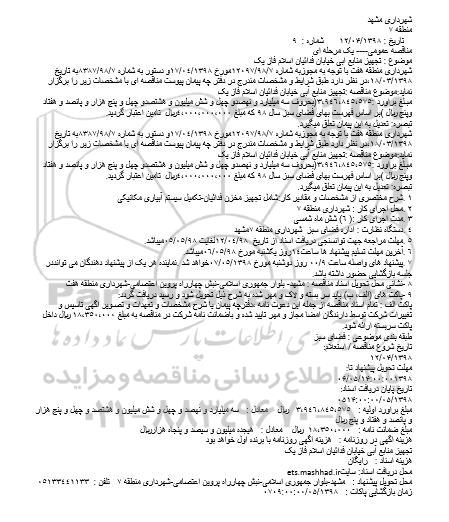 شهرداری مشهد
منطقه ۷
تاریخ : ۱۲/۰۴/۱۳۹۸ شماره : ۹
مناقصه عمومی---- یک مرحله ای
موضوع : تجهیز منابع آبی خیابان فدائیان اسلام فاز یک
شهرداری منطقه هفت با توجه به مجوزبه شماره ۱۲۰۹۷/۹۸/۷مورخ ۱۷/۰۴/۱۳۹۸و دستور به شماره ۸۳۸۷/۹۸/۷به تاریخ
۱۸/۰۳/۱۳۹۸،در نظر دارد طبق شرایط و مشخصات مندرج در دفتر چه پیمان پیوست مناقصه ای با مشخصات زیر را برگزار
نماید:موضوع مناقصه :تجهیز آبی خیابان فدائیان اسلام فاز یک
مبلغ برآورد :۳،۹۴۶،۸۴۵،۵۷۵(بحروف سه میلیارد و نهصدو چهل و شش میلیون و هشتصدو چهل و پنج هزار و پانصد و هفتاد
وپنج ریال )بر اساس فهرست بهای فضای سبز سال ۹۸ که مبلغ ۴،۰۰۰،۰۰۰،۰۰۰ریال تامین اعتبار گردید.
تبصره: تعدیل به این پیمان تعلق میگیرد.
شهرداری منطقه هفت با توجه به مجوزبه شماره ۱۲۰۹۷/۹۸/۷مورخ ۱۷/۰۴/۱۳۹۸و دستور به شماره ۸۳۸۷/۹۸/۷به تاریخ
۱۸/۰۳/۱۳۹۸،در نظر دارد طبق شرایط و مشخصات مندرج در دفتر چه پیمان پیوست مناقصه ای با مشخصات زیر را برگزار
نماید:موضوع مناقصه :تجهیز منابع آبی خیابان فدائیان اسلام فاز یک
مبلغ برآورد :۳،۹۴۶،۸۴۵،۵۷۵(بحروف سه میلیارد و نهصدو چهل و شش میلیون و هشتصدو چهل و پنج هزار و پانصد و هفتاد
وپنج ریال )بر اساس فهرست بهای فضای سبز سال ۹۸ که مبلغ ۴،۰۰۰،۰۰۰،۰۰۰ریال تامین اعتبار گردید.
تبصره: تعدیل به این پیمان تعلق میگیرد.
۱ .شرح مختصری از مشخصات و مقادیر کار:شامل تجهیز مخزن فدائیان-تکمیل سیستم آبیاری مکانیکی
۲ .محل اجرای کار : شهرداری منطقه ۷
۳ .مدت اجرای کار :( ۶) شش ماه شمسی
۴ .دستگاه نظارت : اداره فضای سبز شهرداری منطقه ۷مشهد
۵ .مهلت مراجعه جهت تواسنجی دریافت اسناد از تاریخ ۱۲/۰۴/۹۸لغایت ۰۵/۰۵/۹۸میباشد
۶ .آخرین مهلت تسلیم پیشنهاد ها ساعت۱۴روز یکشنبه مورخ ۰۶/۰۵/۹۸میباشد
۷ .پیشنهاد های واصله ساعت ۰۰/۹ روز دوشنبه مورخ ۰۷/۰۵/۱۳۹۸خواهد شد .نماینده هر یک از پیشنهاد دهندگان می تواننددر
جلسه بازگشایی حضور داشته باشد.
۸ -نشانی محل تحویل اسناد مناقصه : مشهد- بلوار جمهوری اسلامی-نبش چهارراه پروین اعتصامی-شهرداری منطقه هفت
۹ -پاکت های (الف، ب) باید سر بسته و لاک و مهر شده به شرح ذیل تحویل شود و رسید دریافت گردد:
پاکت الف : تمام اسناد مناقصه از جمله این دعوت نامه ،دفترچه پیمان با شرح مشخصات و تعهدات و تصویر آگهی تاسیس و
تغییرات شرکت توسط دارندگان امضا مجاز و مهر تایید شده و باضمانت نامه شرکت در مناقصه به مبلغ ۱۸،۳۵۰،۰۰۰ ریال داخل
پاکت سربسته ارائه شود.
طبقه بندی موضوعی : فضای سبز
تاریخ شروع مناقصه / استعلام:
۱۲/۰۴/۱۳۹۸
مهلت تحویل پیشنهاد تا:
۰۶/۰۵/۱۴:۰۰:۰۰۱۳۹۸
تاریخ پایان دریافت اسناد:
۰۵۱۴:۰۰:۰۰/۰۵/۱۳۹۸
مبلغ برآورد اولیه : ۳،۹۴۶،۸۴۵،۵۷۵ ریال معادل : سه میلیارد و نهصد و چهل و شش میلیون و هشتصد و چهل و پنج هزار
و پانصد و هفتاد و پنج ریال
مبلغ ضمانت نامه : ۱۸،۳۵۰،۰۰۰ ریال معادل : هیجده میلیون و سیصد و پنجاه هزارریال
هزینه آگهی در روزنامه : هزینه آگهی روزنامه با برنده اول خواهد بود
تجهیز منابع آبی خیابان فدائیان اسلام فاز یک
هزینه اسناد : رایگان
محل دریافت اسناد: سایتets.mashhad.ir
محل تحویل پیشنهاد : مشهد-بلوار جمهوری اسلامی-نبش چهارراه پروین اعتصامی-شهرداری منطقه ۷ تلفن : ۰۵۱۳۳۴۴۱۱۳۳
زمان بازگشایی پاکات : ۰۷۰۹:۰۰:۰۰/۰۵/۱۳۹۸